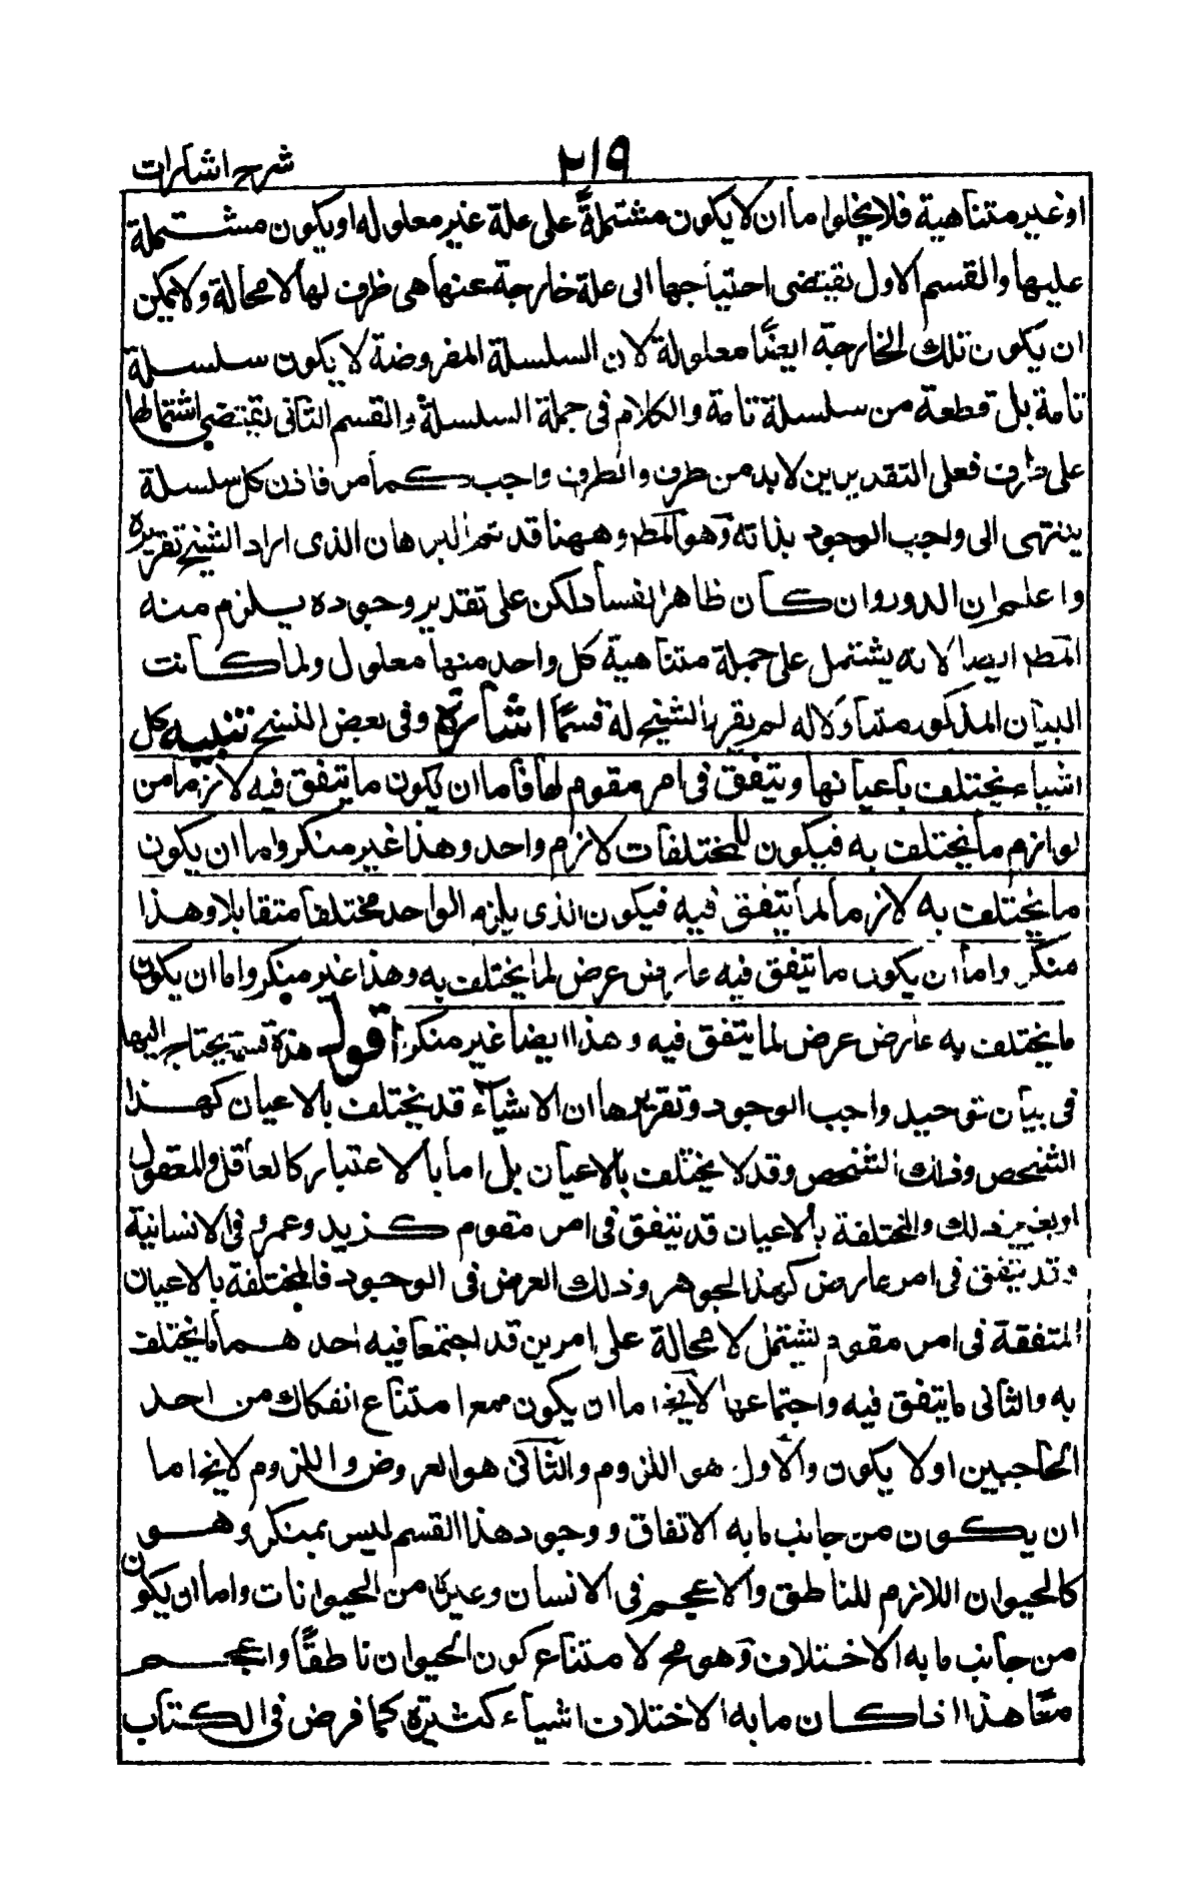 ٢١٩
شرح اشارات
او غير متناهية فلا يخلوا ما ان لا يكون مشتملةً على علة غير معلوله او يكون مشتملة
عليها والقسم الاول يقتضى احتياجها الى علة خارجة عنها هى طرف لها لا محالة ولا يمكن
ان يكون تلك الخارجة ايضًا معلولة لان السلسلة المفروضة لا يكون سلسلة
تامة بل قطعة من سلسلة تامة والكلام فى جملة السلسلة والقسم الثانى يقتضى اشتمالها
على طرف فعلى التقديرين لا بد من طرف والطرف واجب كما مر فاذن كل سلسلة
ينتهى الى واجب الوجود بذاته وهو المط وههنا قد تم البرهان الذى اراد الشيخ تقريره
واعلم ان الدور وان كان ظاهر الفساد لكن على تقدير وجوده يلزم منه
المط ايضا لانه يشتمل على جملة متناهية كل واحد منها معلول ولما كانت
البيان المذكور متناولا له لم يفرد الشيخ له قسمًا اشارة وفى بعض النسخ تنبيه كل
اشياء يختلف باعيانها ويتفق فى امر مقوم لها فاما ان يكون ما يتفق فيه لازما من
لوازم ما يختلف به فيكون للمختلفات لازم واحد وهذا غير منكر واما ان يكون
ما يختلف به لازما لما يتفق فيه فيكون الذى يلزم الواحد مختلفا متقابلا وهذا
منكر واما ان يكون ما يتفق فيه عارض عرض لما يختلف به وهذا غير منكر واما ان يكون
ما يختلف به عارض عرض لما يتفق فيه وهذا ايضا غير منكر اقول هذه قسمة يحتاج اليها
فى بيان توحيد واجب الوجود وتقريرها ان الاشياء قد يختلف بالاعيان كهذا
الشخص وذلك الشخص وقد لا يختلف بالاعيان بل اما بالاعتبار كالعاقل والمعقول
او بغير ذلك والمختلفة بالاعيان قد يتفق فى امر مقوم كزيد وعمرو فى الانسانية
وقد يتفق فى امر عارض كهذا الجوهر وذلك العرض فى الوجود فالمختلفة بالاعيان
المتفقة فى امر مقوم يشتمل لا محالة على امرين قد اجتمعا فيه احدهما ما يختلف
به والثانى ما يتفق فيه واجتماعها لا يخ اما ان يكون مع امتناع انفكاك من احد
الجانبين او لا يكون والاول هو اللزوم والثانى هو العروض واللزوم لا يخ اما
ان يكون من جانب ما به الاتفاق ووجود هذا القسم ليس بمنكر وهو
كالحيوان اللازم للناطق والاعجم فى الانسان وغيره من الحيوانات واما ان يكون
من جانب ما به الاختلاف وهو مح لامتناع كون الحيوان ناطقًا واعجم
معًا هذا اذا كان ما به الاختلاف اشياء كثيرة كما فرض فى الكتاب